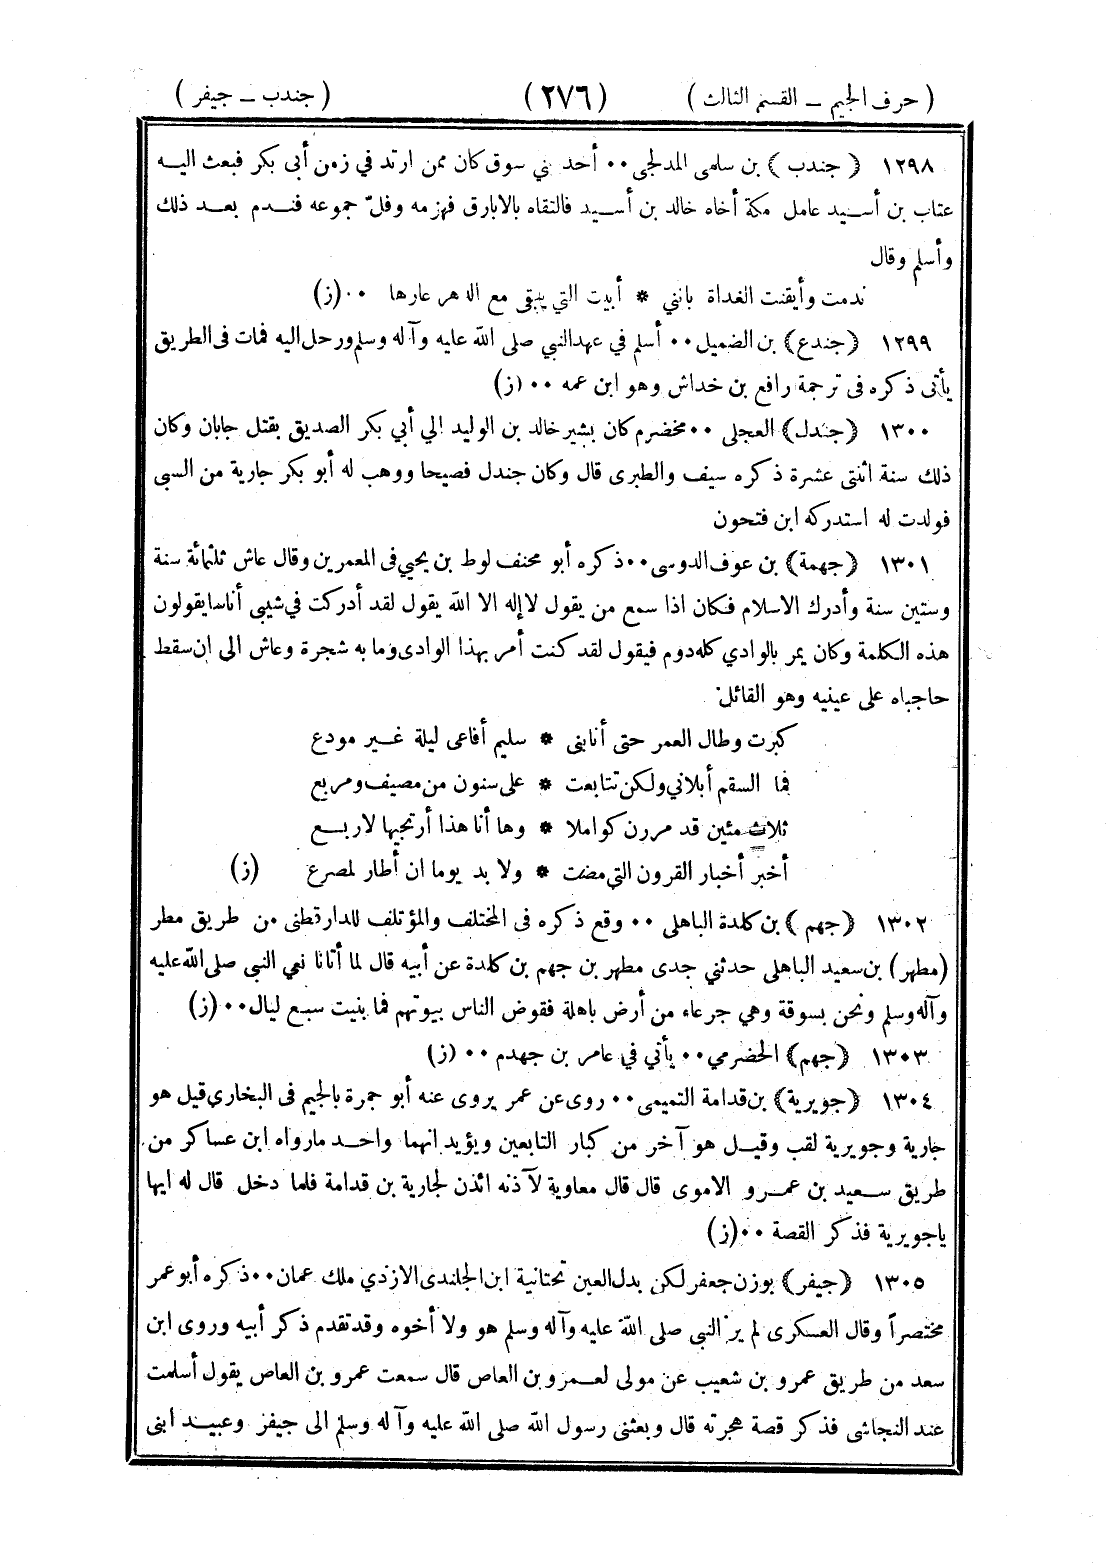 ( حرف الجيم – القسم الثالث ) (٢٧٦) ( جندب – جيفر )
١٢٩٨ ( جندب ) بن سلمى المدلجى ٠٠ أحد بني سوق كان ممن ارتد في زمن أبى بكر فبعث اليه
عتاب بن أسيد عامل مكة أخاه خالد بن أسيد فالتقاه بالابارق فهزمه وفلّ جموعه فندم بعد ذلك
وأسلم وقال
ندمت وأيقنت الغداة بانني * أبيت التي يبقى مع الدهر عارها ٠٠ (ز)
١٢٩٩ (جندع) بن الضميل ٠٠ أسلم في عهدالنبي صلى الله عليه وآله وسلم ورحل اليه فمات فى الطريق
يأتى ذكره فى ترجمة رافع بن خداش وهو ابن عمه ٠٠ (ز)
١٣٠٠ (جندل) العجلى ٠٠ مخضرم كان بشير خالد بن الوليد الي أبي بكر الصديق بقتل جابان وكان
ذلك سنة اثنتى عشرة ذكره سيف والطبرى قال وكان جندل فصيحا ووهب له أبو بكر جارية من السبى
فولدت له استدركه ابن فتحون
١٣٠١ (جهمة) بن عوف الدوسى ٠٠ ذكره أبو مخنف لوط بن يحيي فى المعمرين وقال عاش ثلثمائة سنة
وستين سنة وأدرك الاسلام فكان اذا سمع من يقول لاإله الا الله يقول لقد أدركت في شيبى أناسا يقولون
هذه الكلمة وكان يمر بالوادي كله دوم فيقول لقد كنت أمر بهذا الوادى وما به شجرة وعاش الى ان سقط
حاجباه على عينيه وهو القائل
كبرت وطال العمر حتى أنابنى * سليم أفاعى ليلة غير مودع
فما السقم أبلاني ولكن تتابعت * على سنون من مصيف ومربع
ثلاث مئين قد مررن كواملا * وها أنا هذا أرتجيها لاربع
أخبر أخبار القرون التي مضت * ولا بد يوما ان أطار لمصرع (ز)
١٣٠٢ (جهم ) بن كلدة الباهلى ٠٠ وقع ذكره فى المختلف والمؤتلف للدارقطنى من طريق مطر
(مطهر) بن سعيد الباهلى حدثني جدى مطهر بن جهم بن كلدة عن أبيه قال لما أتانا نعي النبي صلى الله عليه
وآله وسلم ونحن بسوقة وهي جرعاء من أرض باهلة فقوض الناس بيوتهم فما بنيت سبع ليال ٠٠ (ز)
١٣٠٣ (جهم) الحضرمي ٠٠ يأتي في عامر بن جهدم ٠٠ (ز)
١٣٠٤ (جويرية) بن قدامة التميمى ٠٠ روى عن عمر يروى عنه أبو جمرة بالجيم فى البخاري قيل هو
جارية وجويرية لقب وقيل هو آخر من كبار التابعين ويؤيد انهما واحد مارواه ابن عساكر من
طريق سعيد بن عمرو الاموى قال قال معاوية لآذنه ائذن لجارية بن قدامة فلما دخل قال له ايها
ياجويرية فذكر القصة ٠٠ (ز)
١٣٠٥ (جيفر) بوزن جعفر لكن بدل العين تحتانية ابن الجلندى الازدي ملك عمان ٠٠ ذكره أبو عمر
مختصراً وقال العسكرى لم ير النبي صلى الله عليه وآله وسلم هو ولا أخوه وقد تقدم ذكر أبيه وروى ابن
سعد من طريق عمرو بن شعيب عن مولى لعمرو بن العاص قال سمعت عمرو بن العاص يقول أسلمت
عند النجاشى فذكر قصة هجرته قال وبعثنى رسول الله صلى الله عليه وآله وسلم الى جيفز وعبيد ابنى